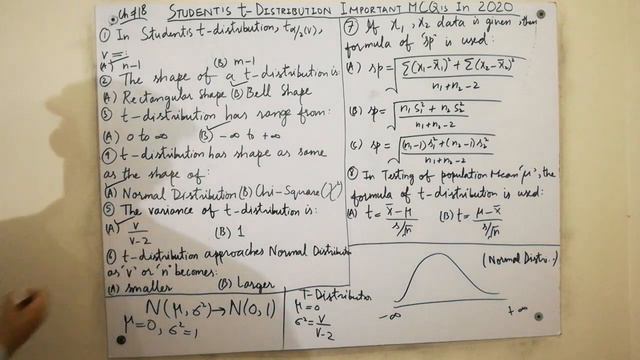 Ch#18 STUDENT'S t-DISTRIBUTION IMPORTANT MCQ's IN 2020
① In Student's t-distribution, tα/2(v),
v =:
(A) n-1 (B) m-1
② The shape of a t-distribution is:
(A) Rectangular Shape (B) Bell Shape
③ t-distribution has range from:
(A) 0 to ∞ (B) -∞ to +∞
④ t-distribution has shape as same
as the shape of:
(A) Normal Distribution (B) Chi-Square (χ²)
⑤ The variance of t-distribution is:
(A) v/v-2 (B) 1
⑥ t-distribution approaches Normal Distribution
as "v" or "n" becomes:
(A) smaller (B) Larger
N(μ, σ²) → N(0, 1)
μ=0, σ²=1
T-Distribution
μ=0
σ²= v/v-2
⑦ If x1, x2 data is given, then
formula of "sp" is used:
(A) sp = √(Σ(x1-x̄1)² + Σ(x2-x̄2)² / n1+n2-2)
(B) sp = √(n1 s1² + n2 s2² / n1+n2-2)
(C) sp = √((n1-1)s1² + (n2-1)s2² / n1+n2-2)
⑧ In Testing of population Mean "μ", the
formula of t-distribution is used:
(A) t = x̄-μ / s/√n (B) t = μ-x̄ / s/√n
(Normal Distri...)
-∞ +∞